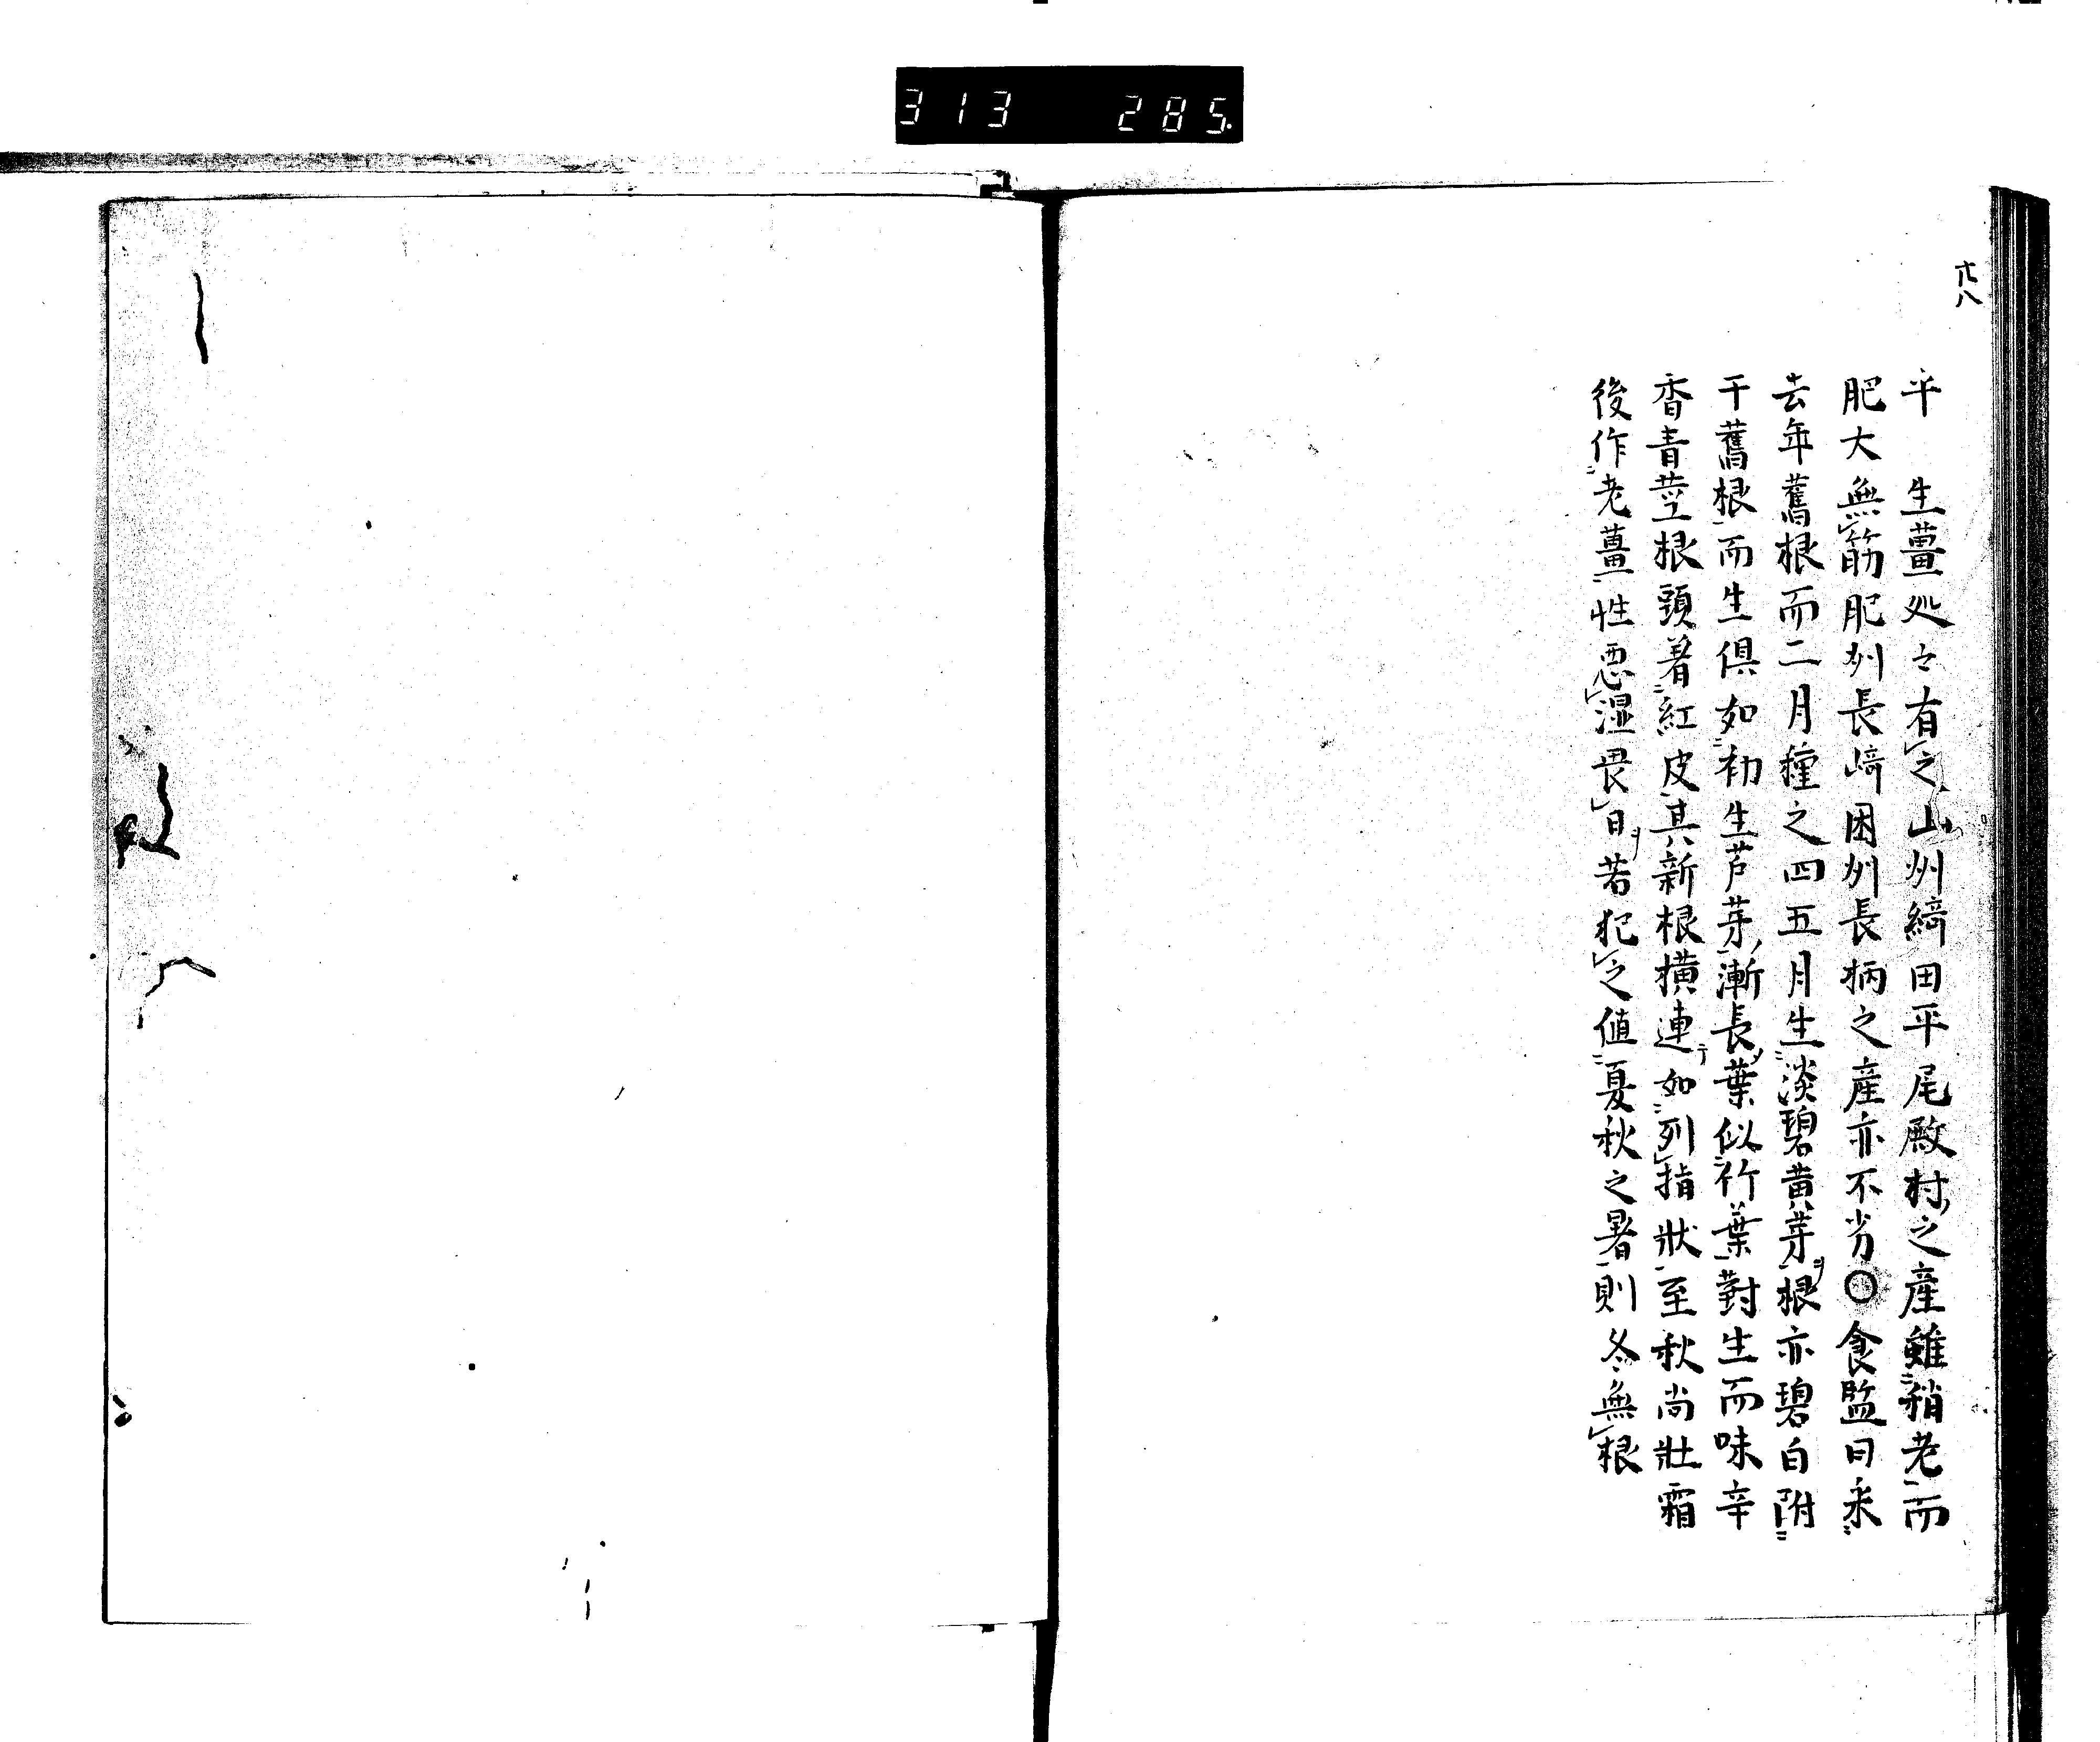 313 285
廿八
平 生薑処々有之山州綺田平尾殿村之産雖稍老而
肥大無筋肥州長崎困州長柄之産亦不劣○食監曰采
去年舊根而二月種之四五月生淡碧黄芽根亦碧白附
干舊根而生俱如初生芦芽漸長葉似竹葉對生而味辛
香青莖根頭着紅皮其新根横連如列指狀至秋尚壯霜
後作老薑性悪湿畏日若犯之値夏秋之暑則冬無根